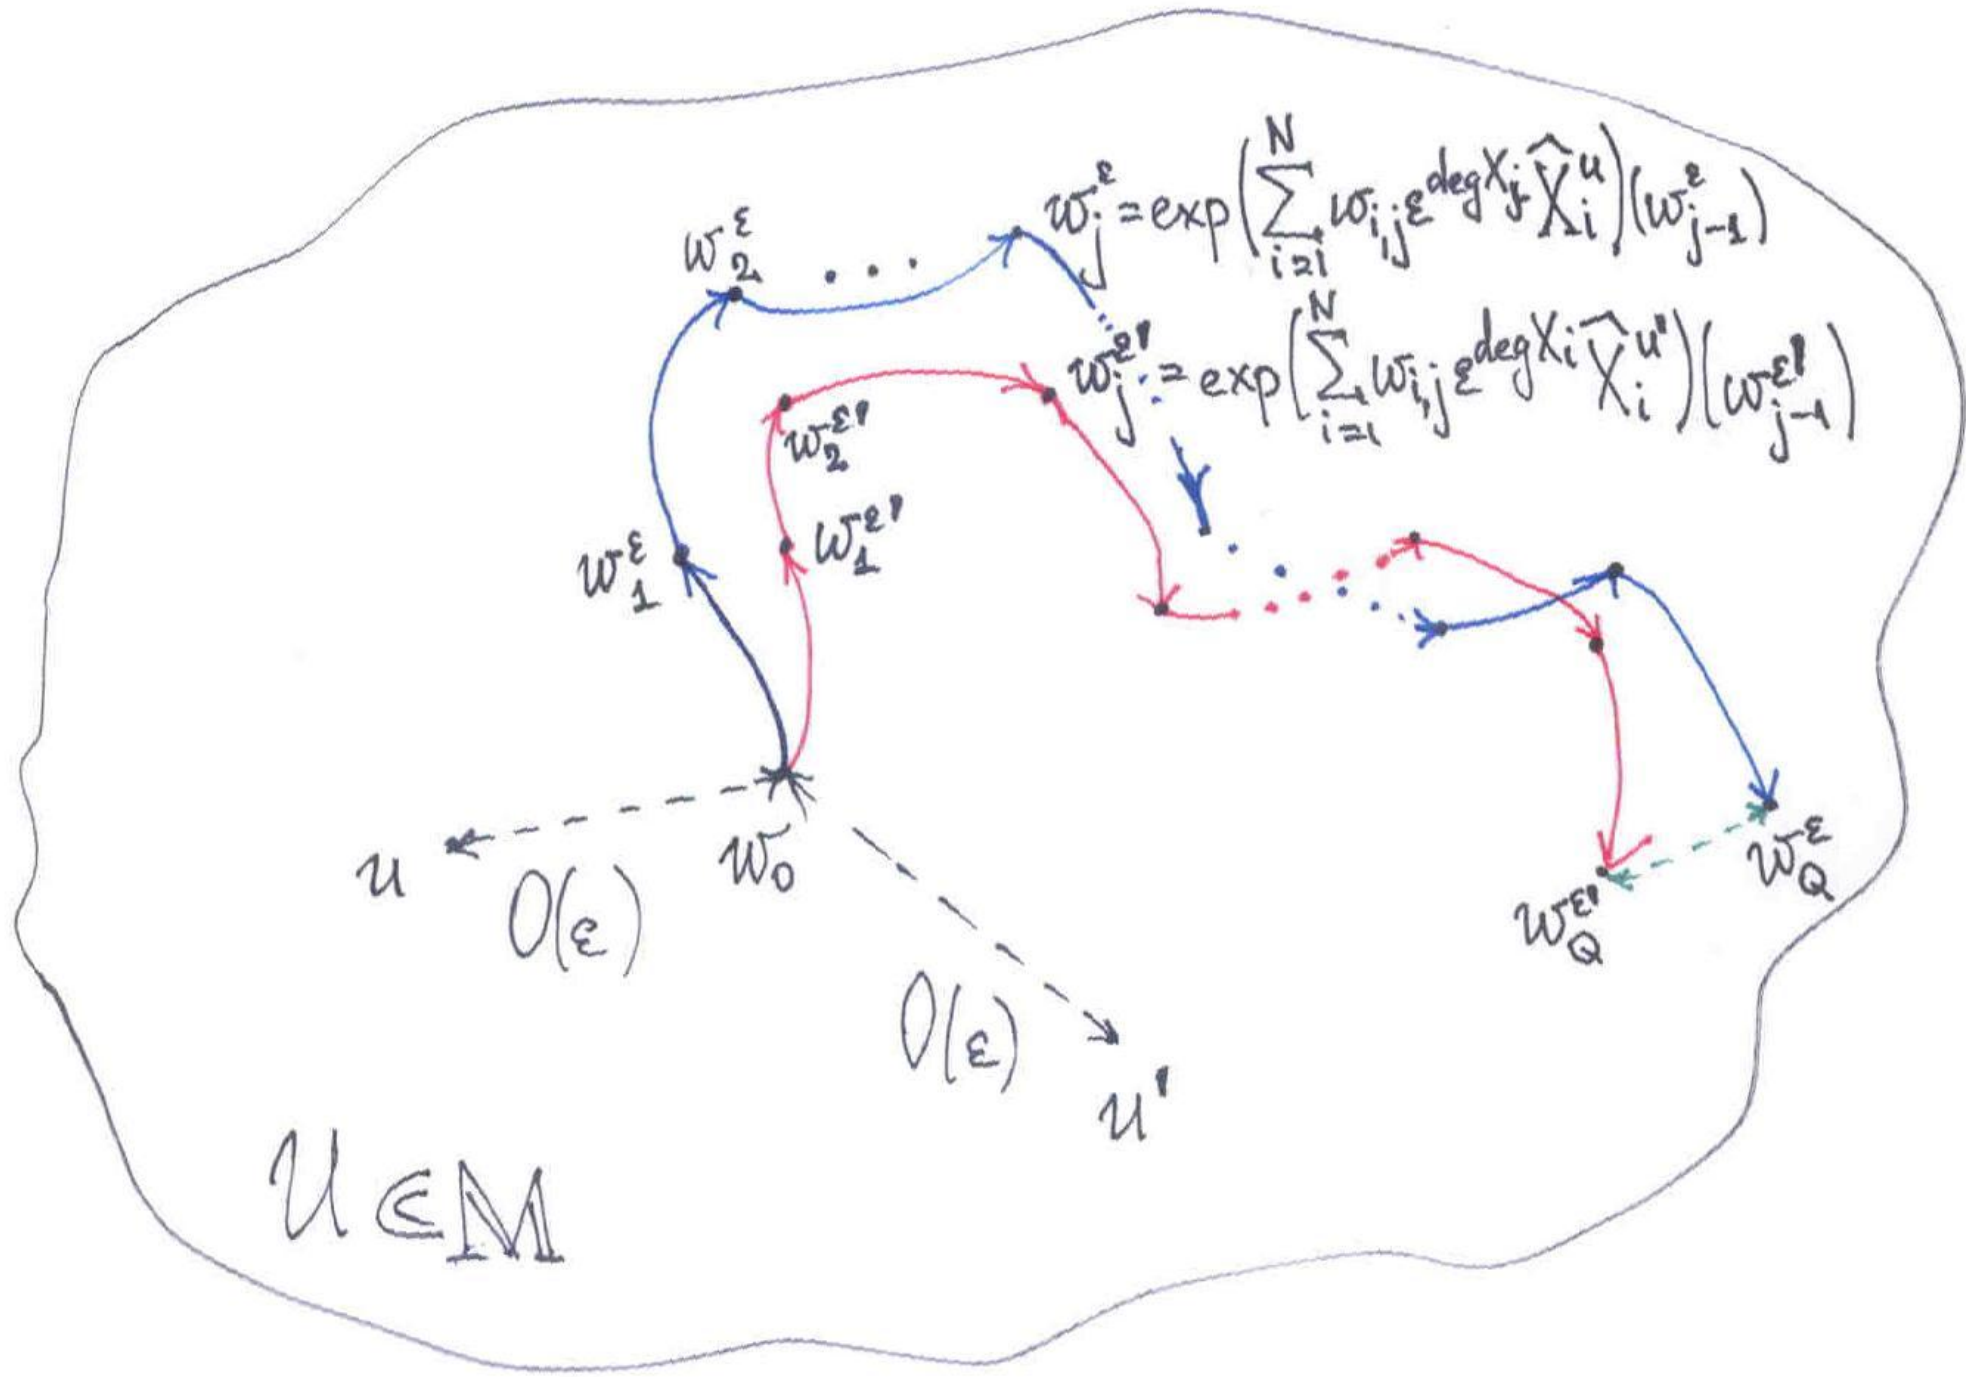 w_j^ε = exp(∑_{i=1}^N w_{i,j} ε^{deg X_j} X̂_i^u)(w_{j-1}^ε)
w_2^ε . . .
w_j^{ε'} = exp(∑_{i=1}^N w_{i,j} ε^{deg X_i} X̂_i^{u'})(w_{j-1}^{ε'})
w_2^{ε'}
w_1^ε w_1^{ε'}
u O(ε) w_0 w_Q^ε
w_Q^{ε'}
O(ε)
u'
U ⋐ 𝕄